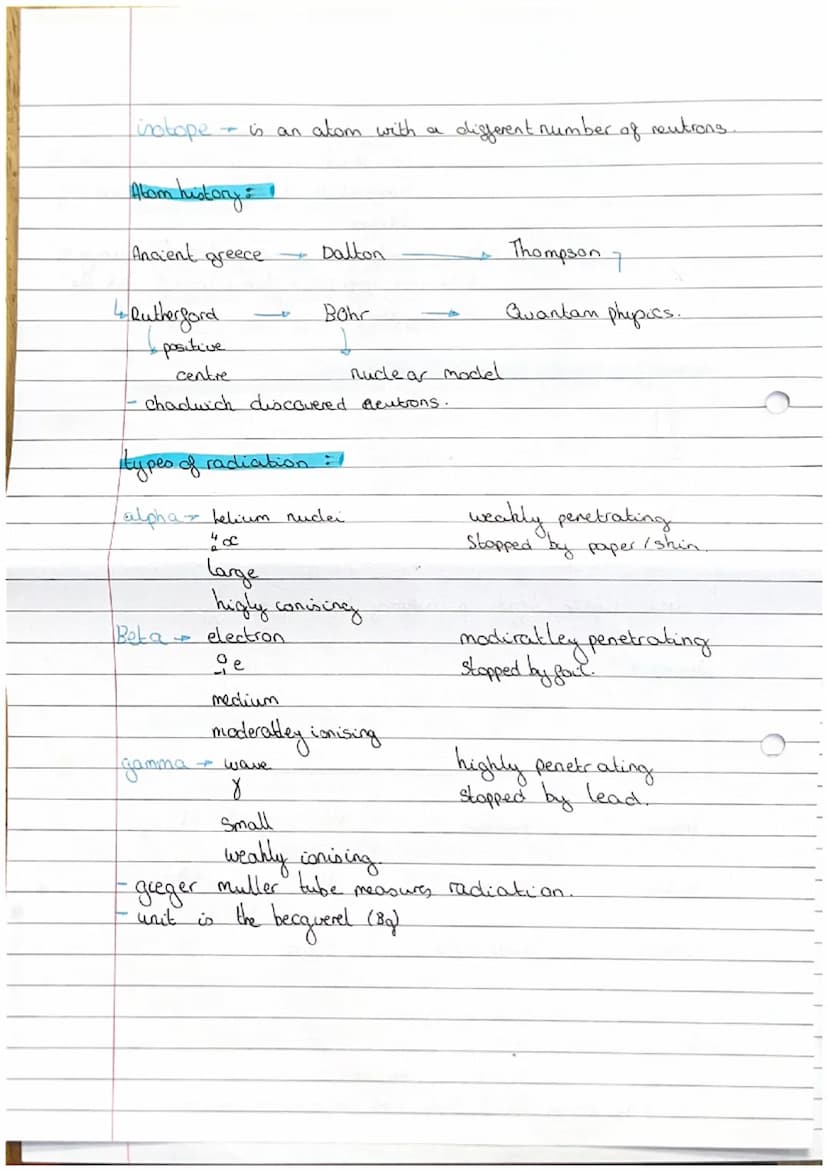 isotope → is an atom with a different number of neutrons.
Atom history:
Ancient greece → Dalton → Thompson
↳ Rutherford → BOhr → Quantam phypics.
↳ positive ↓
centre nuclear model
- chadwich discovered neutrons.
types of radiation :
alpha → helium nuclei weakly penetrating
⁴₂α stopped by paper / skin.
large
higly ionising
Beta → electron modiratley penetrating
⁰₋₁e stopped by foil.
medium
moderatley ionising
gamma → wave highly penetrating
γ stopped by lead.
small
weakly ionising.
- gieger muller tube measures radiation.
- unit is the becquerel (Bq)